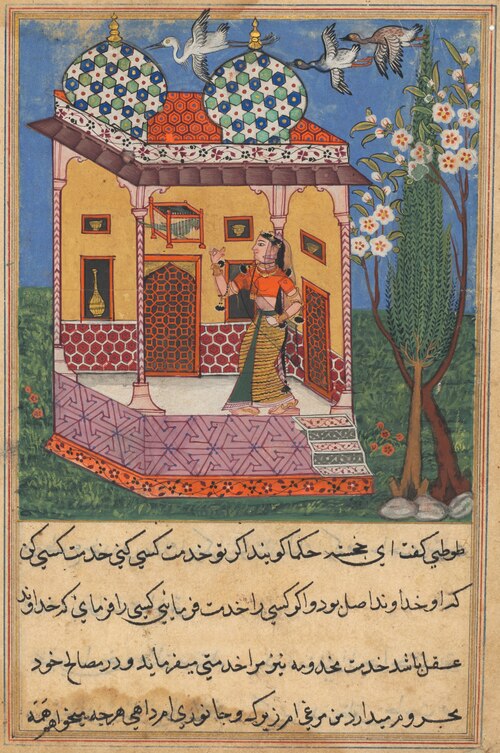 طوطي كفت اي خجسته حكما كويند اكر تو خدمت كسي كني خدمت كسي كن
كه او خداوند اصل بود و اكر كسي را خدمت فرمايي كسي را فرماي كه خداوند
عقل باشد خدمت مخدومه نيز مرا خدمتي ميفرمايد و در مصالح خود
محروم ميدارد من مرغي ام زيرك و جانوري ام داهي هرچه